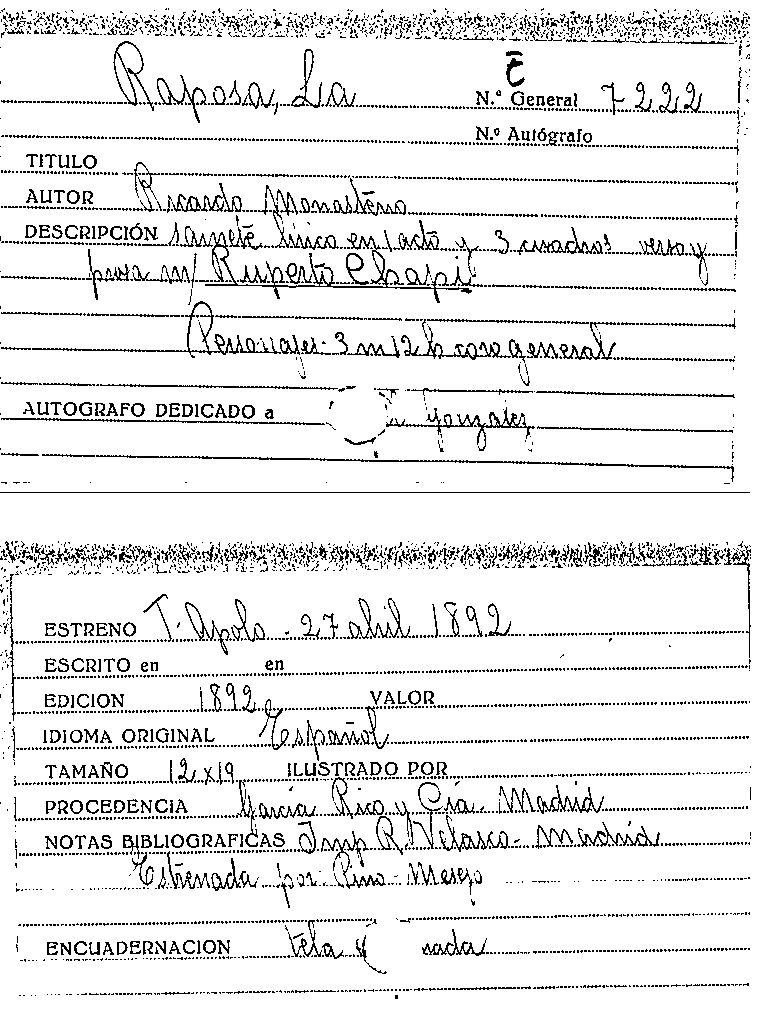 Raposa, La
E
N.º General 7222
N.º Autógrafo
TITULO
AUTOR Ricardo Monasterio
DESCRIPCIÓN sainete lírico en 1 acto y 3 cuadros verso y
prosa m/ Ruperto Chapí
Personajes- 3 m 12 h coro general
AUTOGRAFO DEDICADO a González
ESTRENO T. Apolo - 27 abril 1892
ESCRITO en en
EDICION 1892 VALOR
IDIOMA ORIGINAL Español
TAMAÑO 12 x 19 ILUSTRADO POR
PROCEDENCIA García Rico y Cía. Madrid
NOTAS BIBLIOGRAFICAS Imp R. Velasco - Madrid
Estrenada por Pino - Mesejo
ENCUADERNACION tela